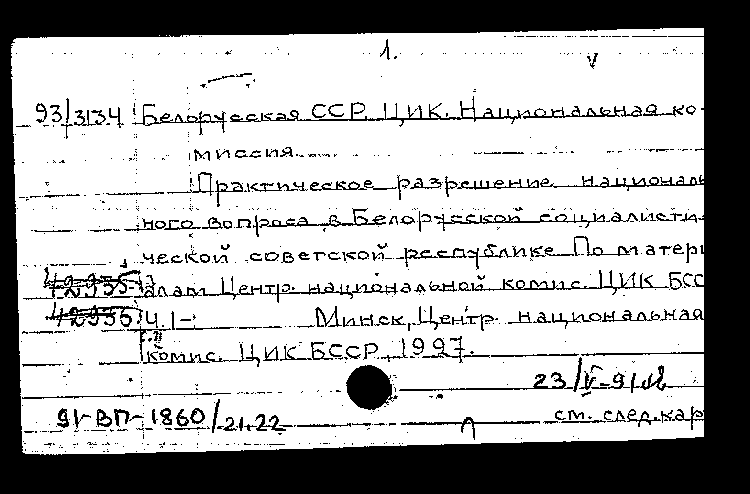 1.
93/3134 Белорусская ССР. ЦИК. Национальная ко-
миссия.
Практическое разрешение националь
ного вопроса в Белорусской социалисти-
ческой советской республике По матери
42935 алам Центр. национальной комис. ЦИК БСС
42935 Ч.1- Минск, Центр. национальная
комис. ЦИК БССР, 1927.
23/V-91
91-ВП-1860/21.22 см. след.кар